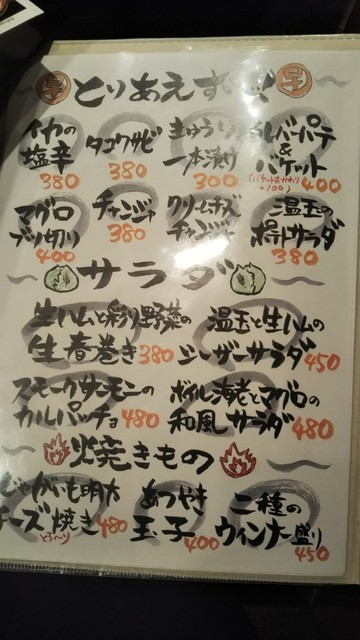 早 とりあえず 早
イカの塩辛 380
タコワサビ 380
きゅうり一本漬け 300
レバーパテ&バケット 400
(バケットおかわり+100)
マグロブツ切り 400
チャンジャ 380
クリームチーズチャンジャ 380
温玉のポテトサラダ 380
サラダ
生ハムと彩り野菜の生春巻き 380
温玉と生ハムのシーザーサラダ 450
スモークサーモンのカルパッチョ 480
ボイル海老とマグロの和風サラダ 480
焼きもの
じゃがいも明太チーズ焼き 480
とろ〜り
あつやき玉子 400
二種のウィンナー盛り 450